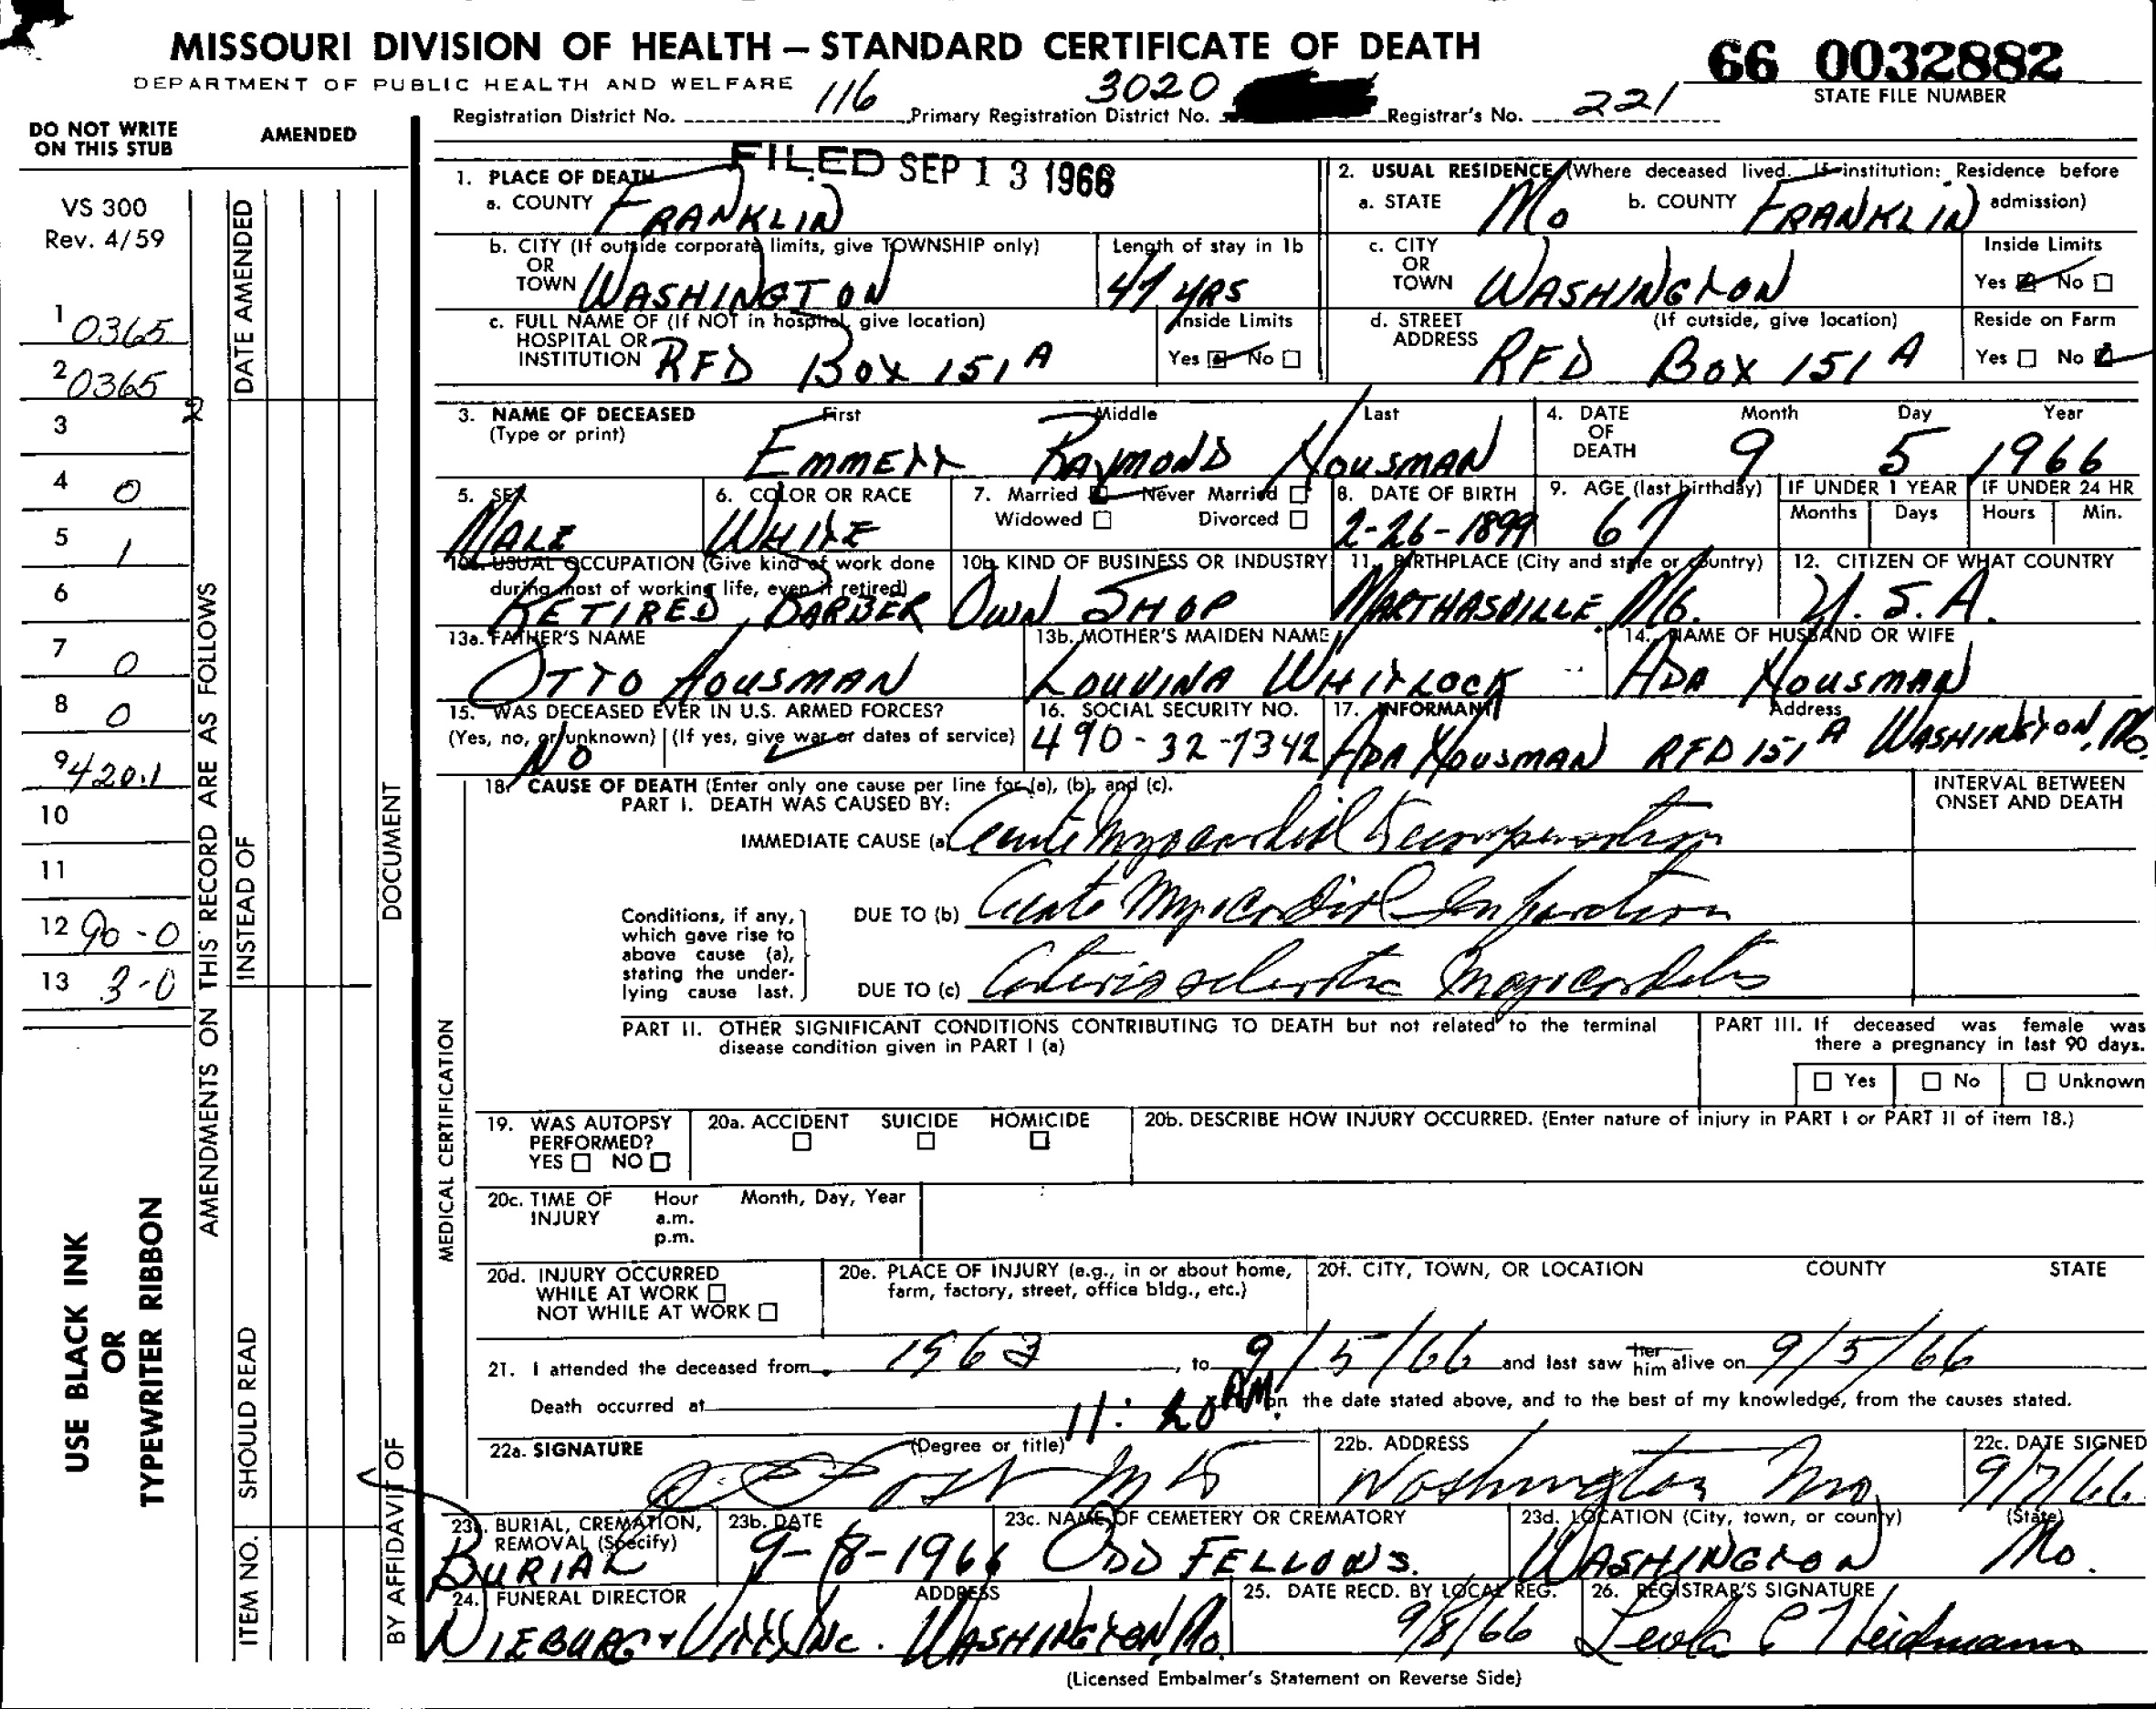 MISSOURI DIVISION OF HEALTH – STANDARD CERTIFICATE OF DEATH
66 0032882
DEPARTMENT OF PUBLIC HEALTH AND WELFARE
STATE FILE NUMBER
Registration District No. 116 Primary Registration District No. 3020 Registrar's No. 221
DO NOT WRITE
ON THIS STUB
AMENDED
VS 300
Rev. 4/59
1 0365
2 0365
3 2
4 0
5 1
6
7 0
8 0
9 420.1
10
11
12 90-0
13 3-0
USE BLACK INK
OR
TYPEWRITER RIBBON
AMENDMENTS ON THIS RECORD ARE AS FOLLOWS
DATE AMENDED
INSTEAD OF
SHOULD READ
ITEM NO.
DOCUMENT
BY AFFIDAVIT OF
MEDICAL CERTIFICATION
FILED SEP 13 1966
1. PLACE OF DEATH
a. COUNTY FRANKLIN
2. USUAL RESIDENCE (Where deceased lived. If institution: Residence before admission)
a. STATE Mo b. COUNTY FRANKLIN
b. CITY (If outside corporate limits, give TOWNSHIP only)
OR
TOWN WASHINGTON
Length of stay in 1b
47 YRS
c. CITY
OR
TOWN WASHINGTON
Inside Limits
Yes No
c. FULL NAME OF (If NOT in hospital, give location)
HOSPITAL OR
INSTITUTION RFD BOX 151 A
Inside Limits
Yes No
d. STREET
ADDRESS
(If outside, give location)
RFD BOX 151 A
Reside on Farm
Yes No
3. NAME OF DECEASED
(Type or print)
First Middle Last
EMMETT RAYMOND HOUSMAN
4. DATE
OF
DEATH
Month Day Year
9 5 1966
5. SEX
MALE
6. COLOR OR RACE
WHITE
7. Married Never Married
Widowed Divorced
8. DATE OF BIRTH
2-26-1899
9. AGE (last birthday)
67
IF UNDER 1 YEAR
Months Days
IF UNDER 24 HR
Hours Min.
10a. USUAL OCCUPATION (Give kind of work done
during most of working life, even if retired)
RETIRED, BARBER
10b. KIND OF BUSINESS OR INDUSTRY
OWN SHOP
11. BIRTHPLACE (City and state or country)
MARTHASVILLE, MO.
12. CITIZEN OF WHAT COUNTRY
U. S. A.
13a. FATHER'S NAME
OTTO HOUSMAN
13b. MOTHER'S MAIDEN NAME
LOUVINA WHITLOCK
14. NAME OF HUSBAND OR WIFE
ADA HOUSMAN
15. WAS DECEASED EVER IN U.S. ARMED FORCES?
(Yes, no, or unknown) (If yes, give war or dates of service)
NO
16. SOCIAL SECURITY NO.
490-32-7342
17. INFORMANT Address
ADA HOUSMAN RFD 151 A WASHINGTON, Mo.
18. CAUSE OF DEATH (Enter only one cause per line for (a), (b), and (c).
PART I. DEATH WAS CAUSED BY:
INTERVAL BETWEEN
ONSET AND DEATH
IMMEDIATE CAUSE (a) Acute Myocardial Decompensation
Conditions, if any,
which gave rise to
above cause (a),
stating the under-
lying cause last.
DUE TO (b) Acute Myocardial Infarction
DUE TO (c) Arteriosclerotic Myocarditis
PART II. OTHER SIGNIFICANT CONDITIONS CONTRIBUTING TO DEATH but not related to the terminal
disease condition given in PART I (a)
PART III. If deceased was female was
there a pregnancy in last 90 days.
Yes No Unknown
19. WAS AUTOPSY
PERFORMED?
YES NO
20a. ACCIDENT SUICIDE HOMICIDE
20b. DESCRIBE HOW INJURY OCCURRED. (Enter nature of injury in PART I or PART II of item 18.)
20c. TIME OF
INJURY
Hour Month, Day, Year
a.m.
p.m.
20d. INJURY OCCURRED
WHILE AT WORK
NOT WHILE AT WORK
20e. PLACE OF INJURY (e.g., in or about home,
farm, factory, street, office bldg., etc.)
20f. CITY, TOWN, OR LOCATION COUNTY STATE
21. I attended the deceased from 1963, to 9/5/66 and last saw her him alive on 9/5/66
Death occurred at 11:20 AM. on the date stated above, and to the best of my knowledge, from the causes stated.
22a. SIGNATURE (Degree or title)
M D
22b. ADDRESS
Washington Mo
22c. DATE SIGNED
9/7/66
23a. BURIAL, CREMATION,
REMOVAL (Specify)
BURIAL
23b. DATE
9-8-1966
23c. NAME OF CEMETERY OR CREMATORY
ODD FELLOWS.
23d. LOCATION (City, town, or county) (State)
WASHINGTON Mo.
24. FUNERAL DIRECTOR ADDRESS
NIEBURG & VITT, INC. WASHINGTON, Mo.
25. DATE RECD. BY LOCAL REG.
9/8/66
26. REGISTRAR'S SIGNATURE
Leola C Heidmann
(Licensed Embalmer's Statement on Reverse Side)